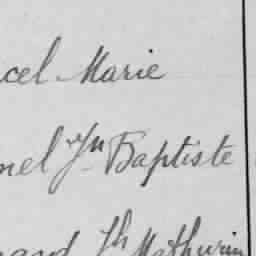 cel Marie
nel Jn Baptiste
nard Jh Mathurin